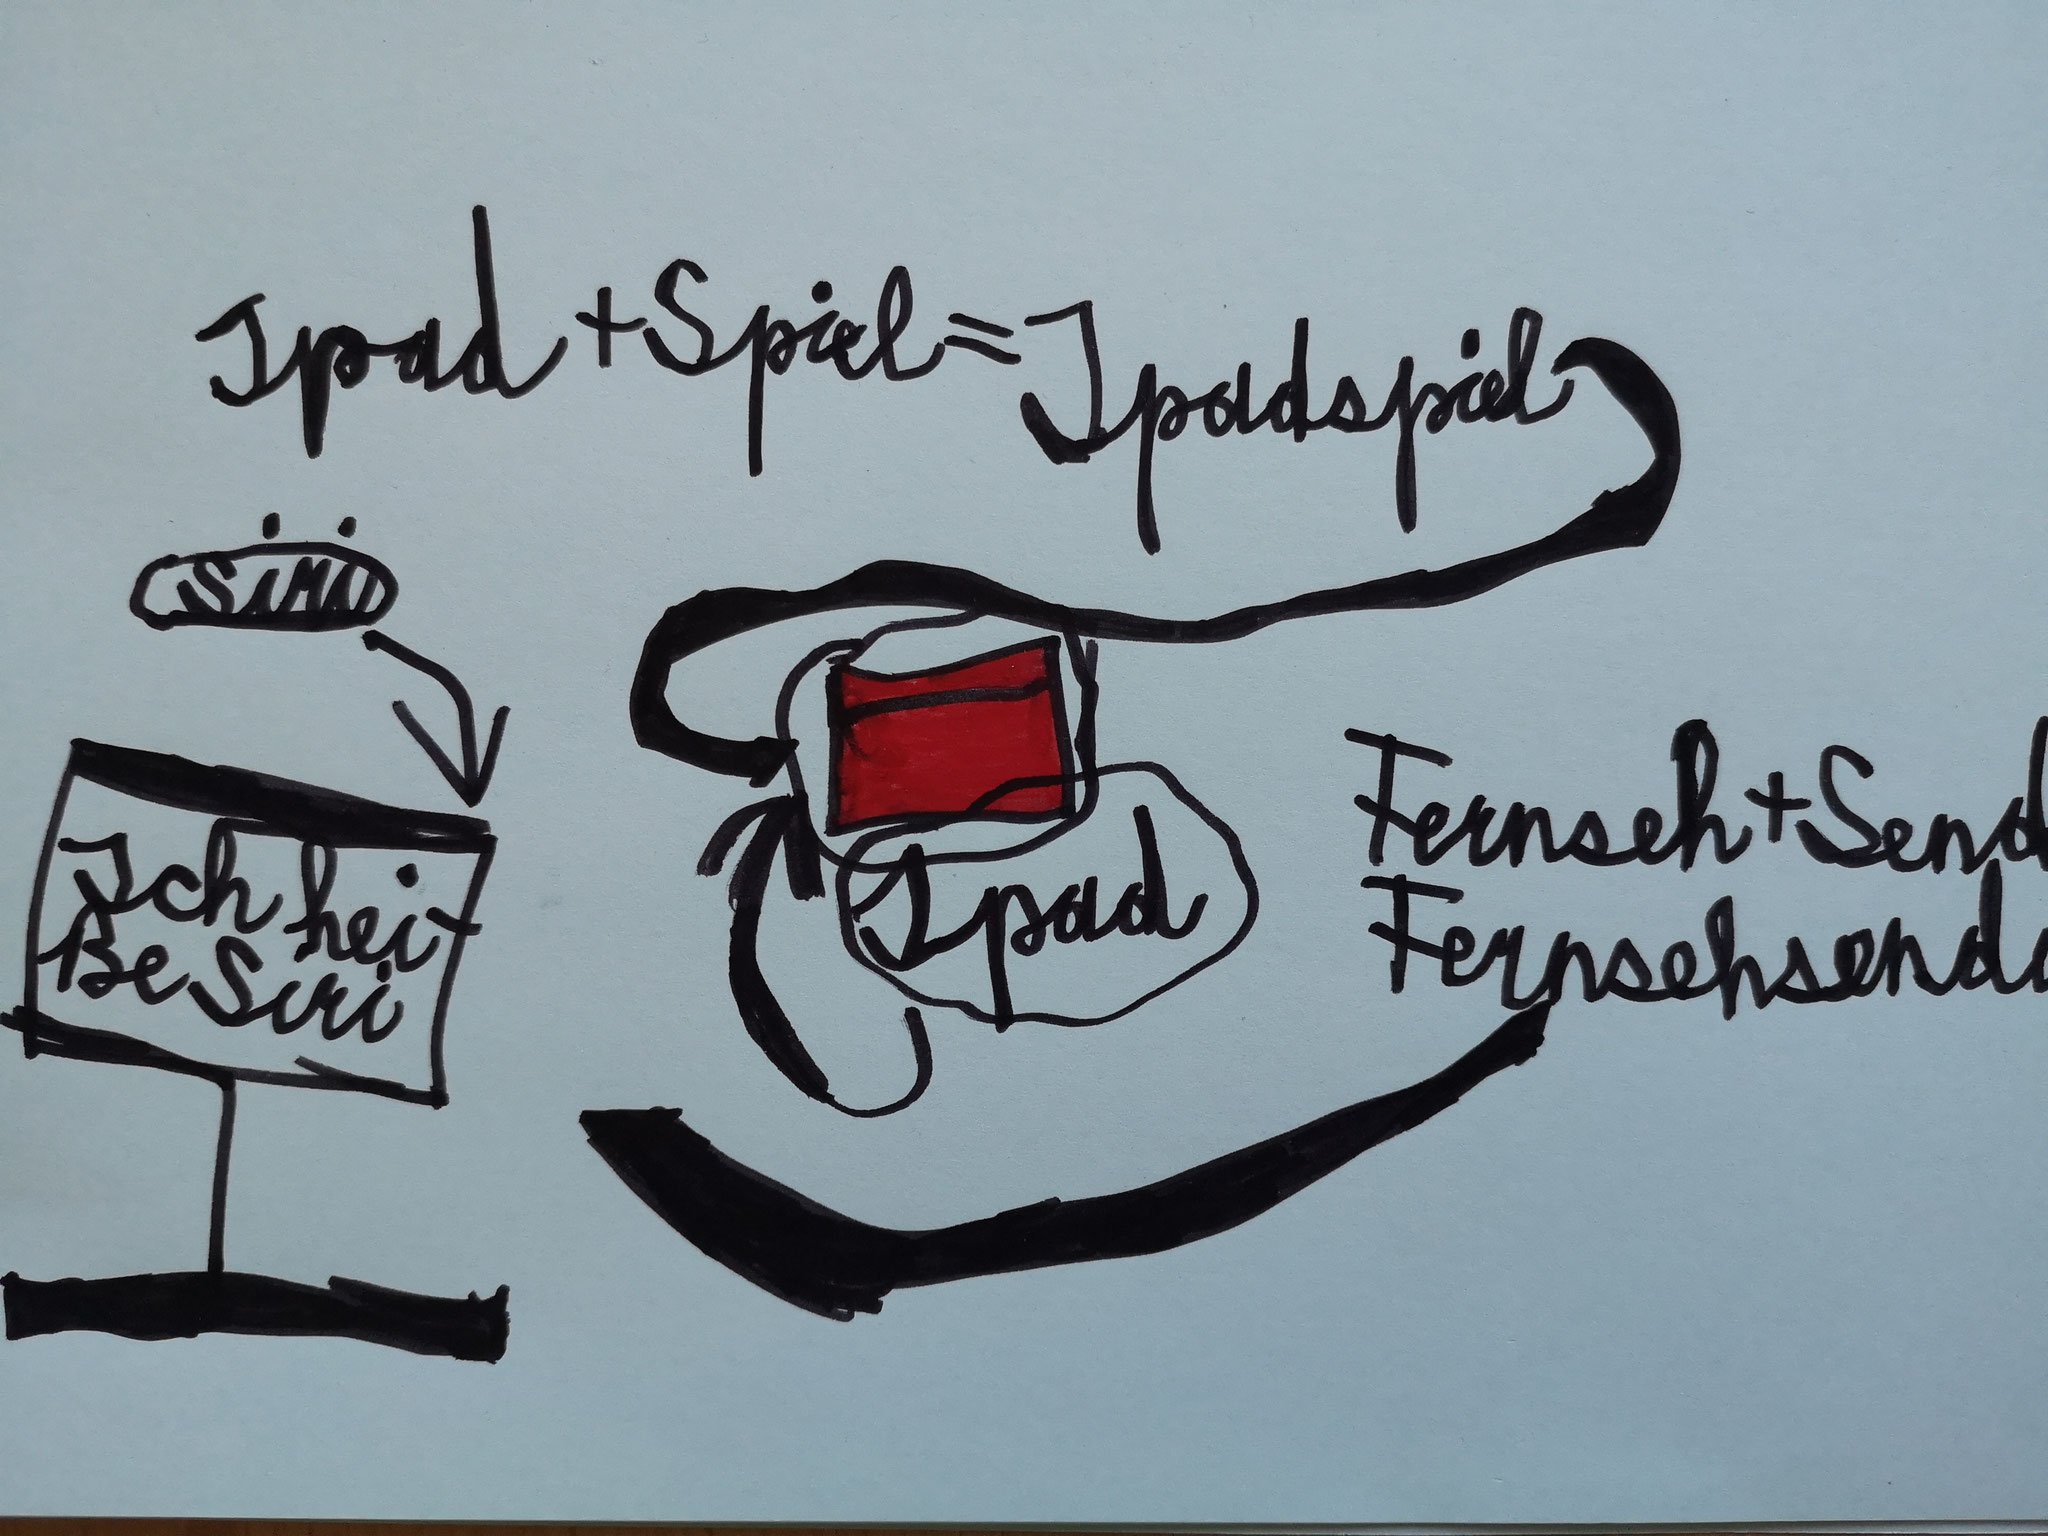 Ipad + Spiel = Ipadspiel
Ich hei-
ße Siri
Ipad
Fernseh + Send
Fernsehsend